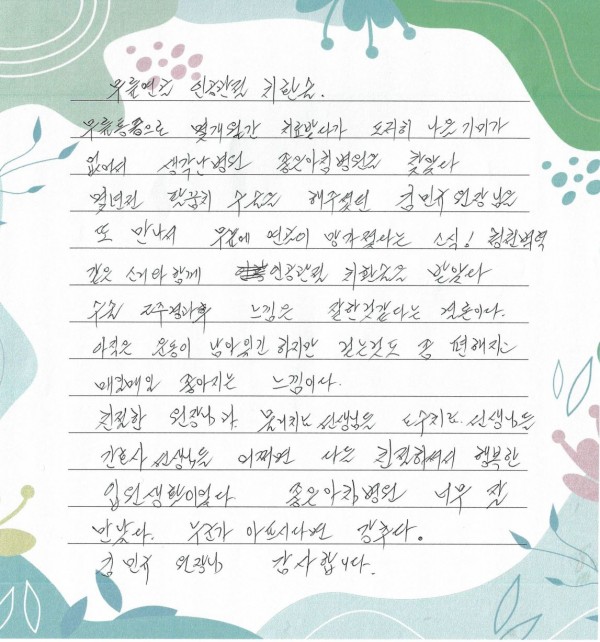 무릎연골 인공관절 치환술.
무릎통증으로 몇개월간 치료받다가 도저히 나을 기미가
없어서 생각난 병원 좋은아침병원을 찾았다
몇년전 팔꿈치 수술을 해주셨던 김민규 원장님을
또 만나서 무릎에 연골이 망가졌다는 소식! 청천벽력
같은 소리와 함께 인공관절 치환술을 받았다
수술 2주경과후 느낌은 잘한것같다는 결론이다.
아직은 운동이 남아있긴 하지만 걷는것도 좀 편해지고
매일매일 좋아지는 느낌이다.
친절한 원장님과, 물리치료 선생님들 도수치료 선생님들
간호사 선생님들 어쩌면 다들 친절하셔서 행복한
입원생활이었다 좋은아침병원 너무 잘
만났다. 누군가 아프시다면 강추다.
김민규 원장님 감사합니다.